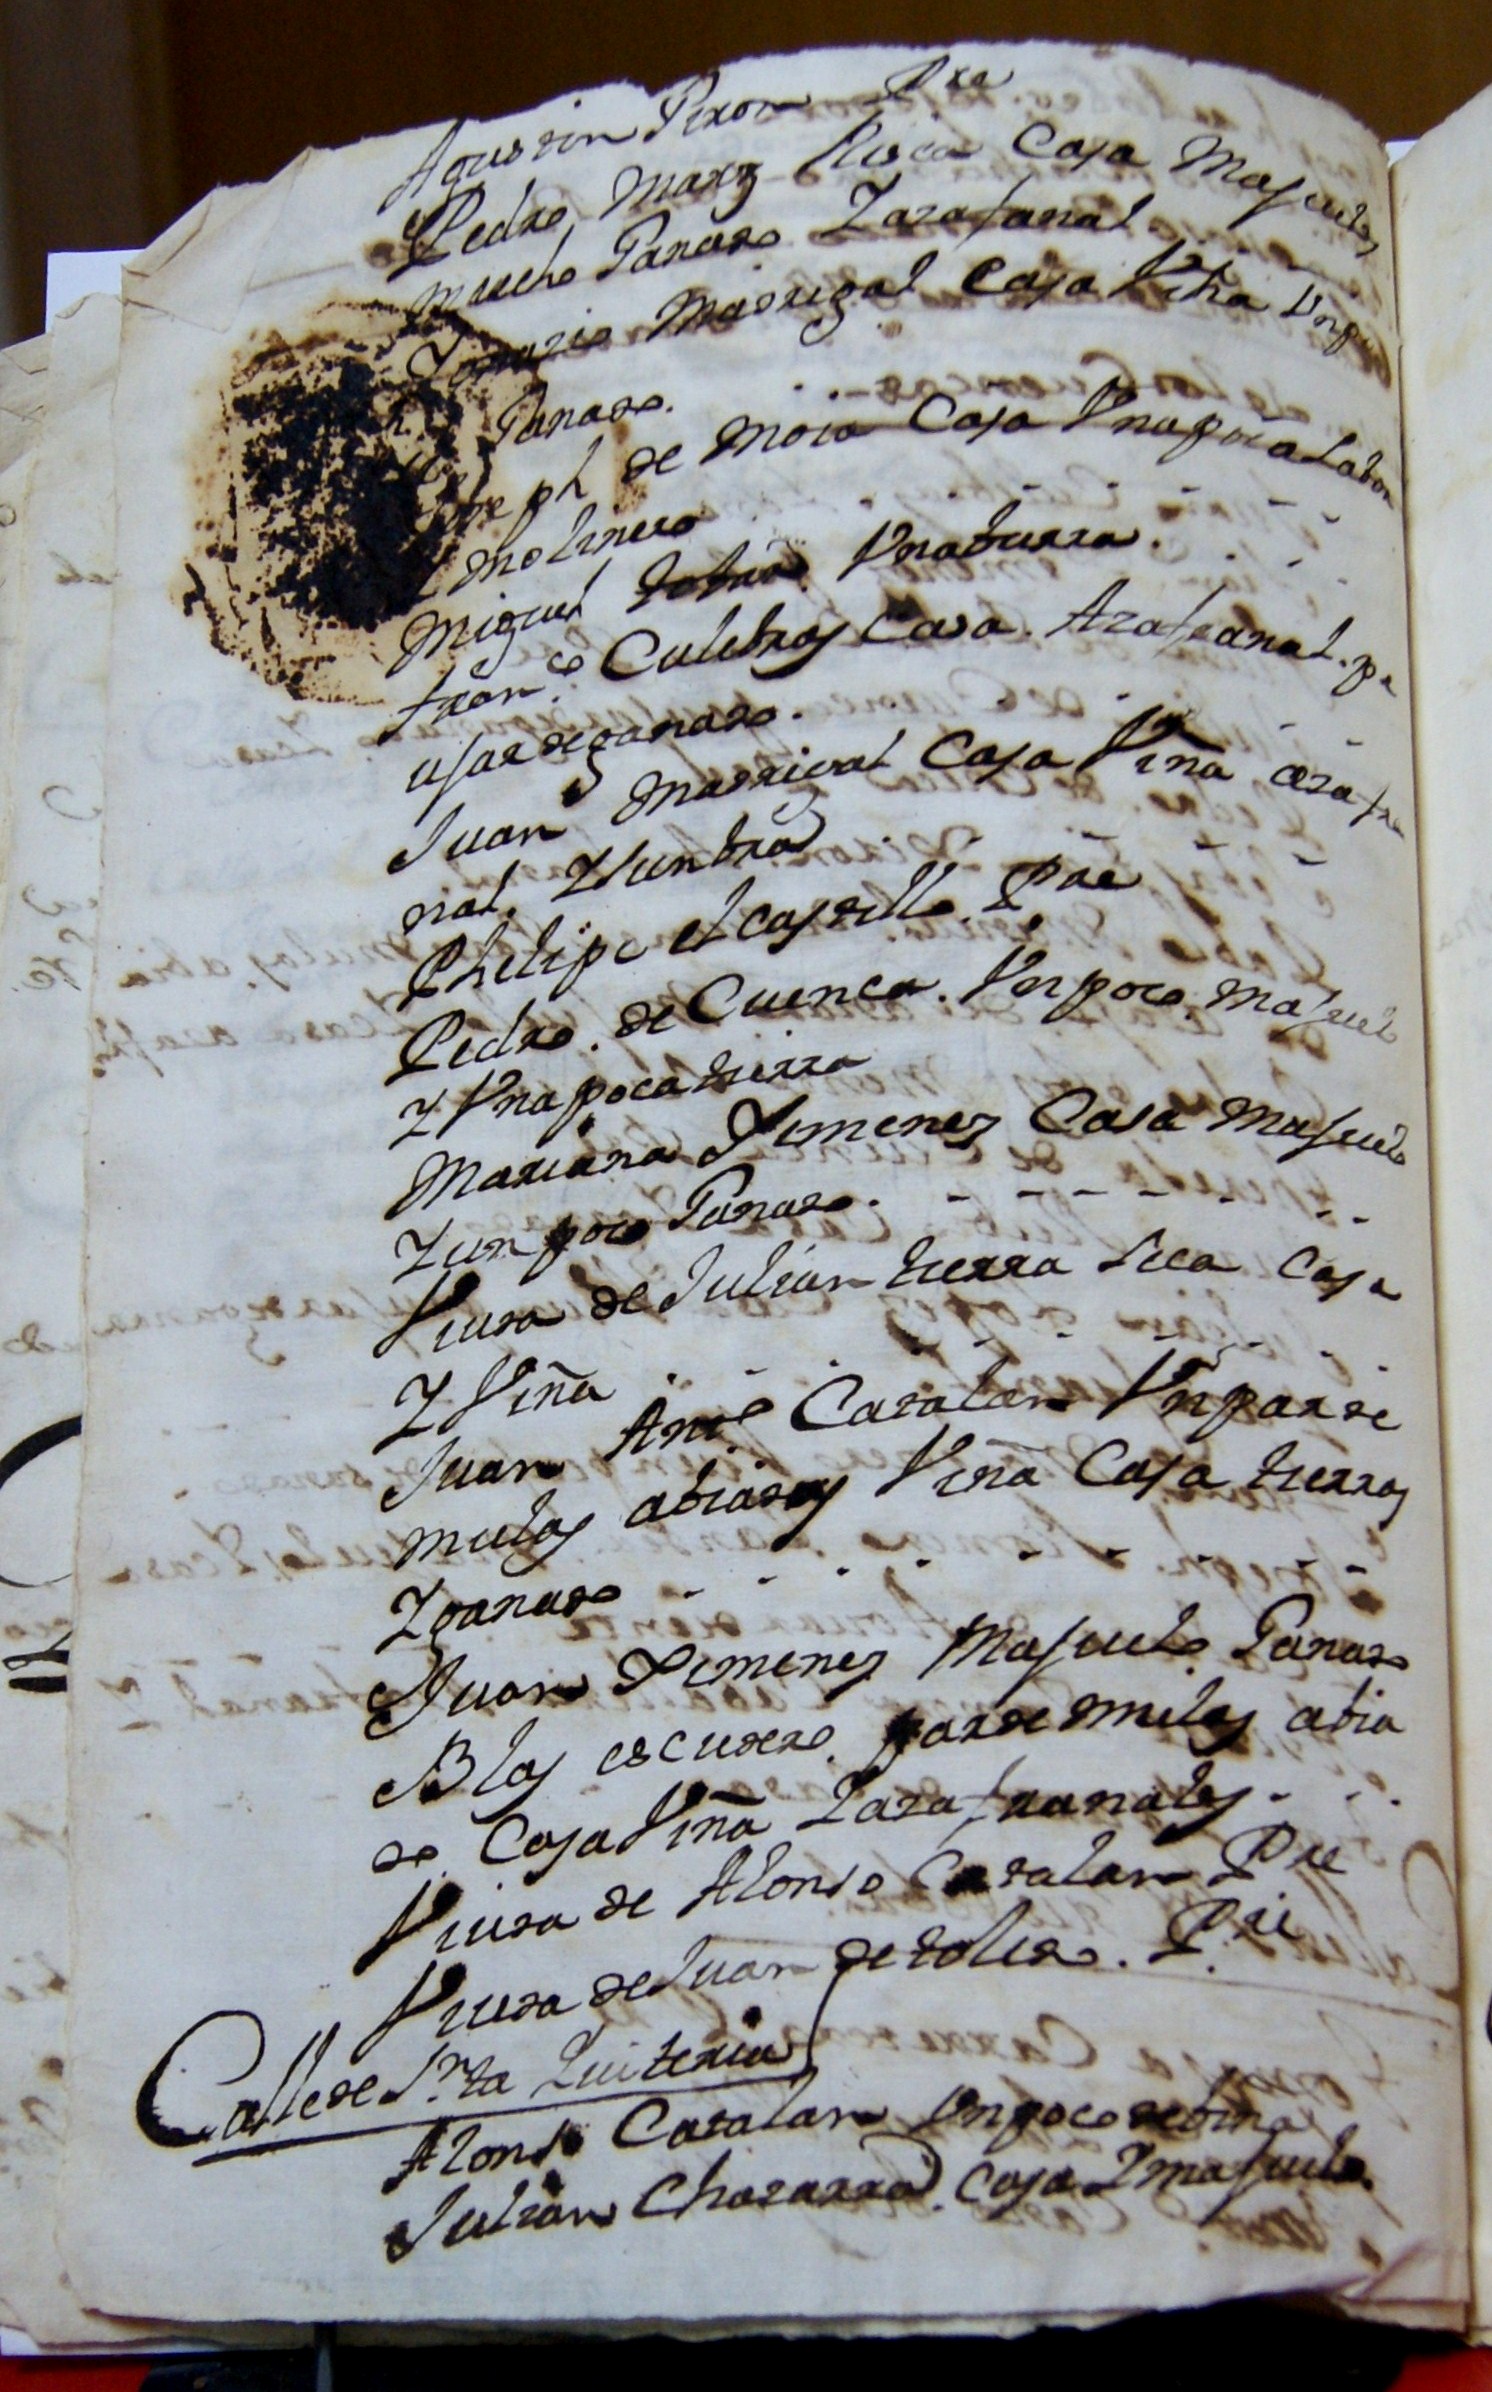 Agustin Pixon Pxe
Pedro Marz Risca Casa Majuelos
mucho Ganado Zazafanal
Ignazio Madrigal Casa Viña Un p
Ganado.
Joseph de Moia Casa Una poca labor
Y Molinero
Miguel Una burra.
fran.co Culebras Casa. Azafranal. pe
ujar de ganado.
Juan Madrigal Casa Viña azafra
nal. Y lunbra
Phelipe el Castillo. Pre
Pedro. de Cuenca. Un poco. Majuelo
Y Una poca tierra
Mariana Ximenez Casa Majuelo
Y un poco Ganado.
Viuda de Julian tierra seca Casa
Y Viña
Juan Anto Catalan Un par de
mulas abiadas Viña Casa tierras
Y ganado
Juan Ximenez Majuelo. Ganado
Blas escudero. par de mulas abia
do. Casa Viña Y azafranales.
Viuda de Alonso Catalan Pre
Viuda de Juan de toledo. Pre
Calle de Sta Quiteria
Alonso Catalan Un poco de viña
Julian Chatarra. Casa Y majuelo.